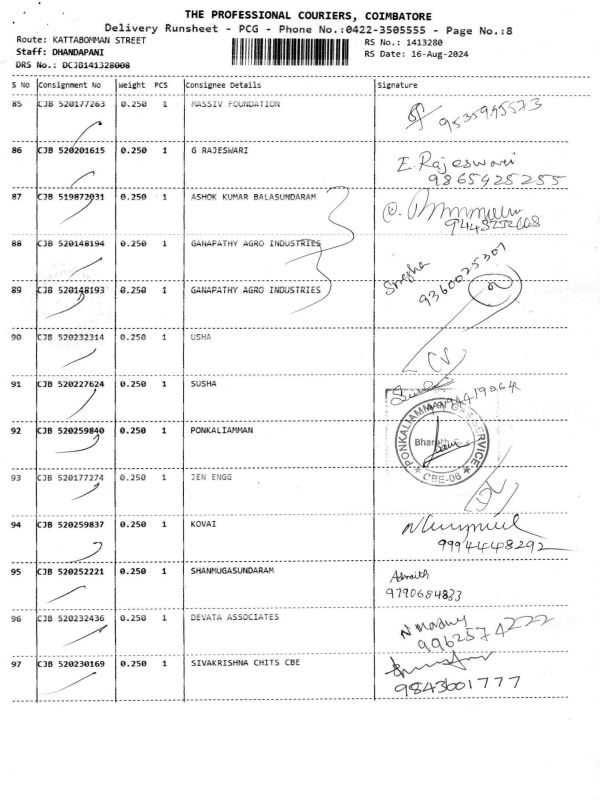 THE PROFESSIONAL COURIERS, COIMBATORE
Delivery Runsheet - PCG - Phone No.:0422-3505555 - Page No.:8
Route: KATTABOMMAN STREET
RS No.: 1413280
Staff: DHANDAPANI
RS Date: 16-Aug-2024
DRS No.: DCJB141328008
S No Consignment No Weight PCS Consignee Details Signature
85 CJB 520177263 0.250 1 MASSIV FOUNDATION 9535945573
86 CJB 520201615 0.250 1 G RAJESWARI E. Rajeswari
9865425255
87 CJB 519872031 0.250 1 ASHOK KUMAR BALASUNDARAM
88 CJB 520148194 0.250 1 GANAPATHY AGRO INDUSTRIES
9360025307
89 CJB 520148193 0.250 1 GANAPATHY AGRO INDUSTRIES
90 CJB 520232314 0.250 1 USHA
91 CJB 520227624 0.250 1 SUSHA
92 CJB 520259840 0.250 1 PONKALIAMMAN
PONKALIAMMAN SERVICE
CBE-06
93 CJB 520177274 0.250 1 JEN ENGG
94 CJB 520259837 0.250 1 KOVAI
9994448292
95 CJB 520252221 0.250 1 SHANMUGASUNDARAM
9790684833
96 CJB 520232436 0.250 1 DEVATA ASSOCIATES
9962574222
97 CJB 520230169 0.250 1 SIVAKRISHNA CHITS CBE
9843601777